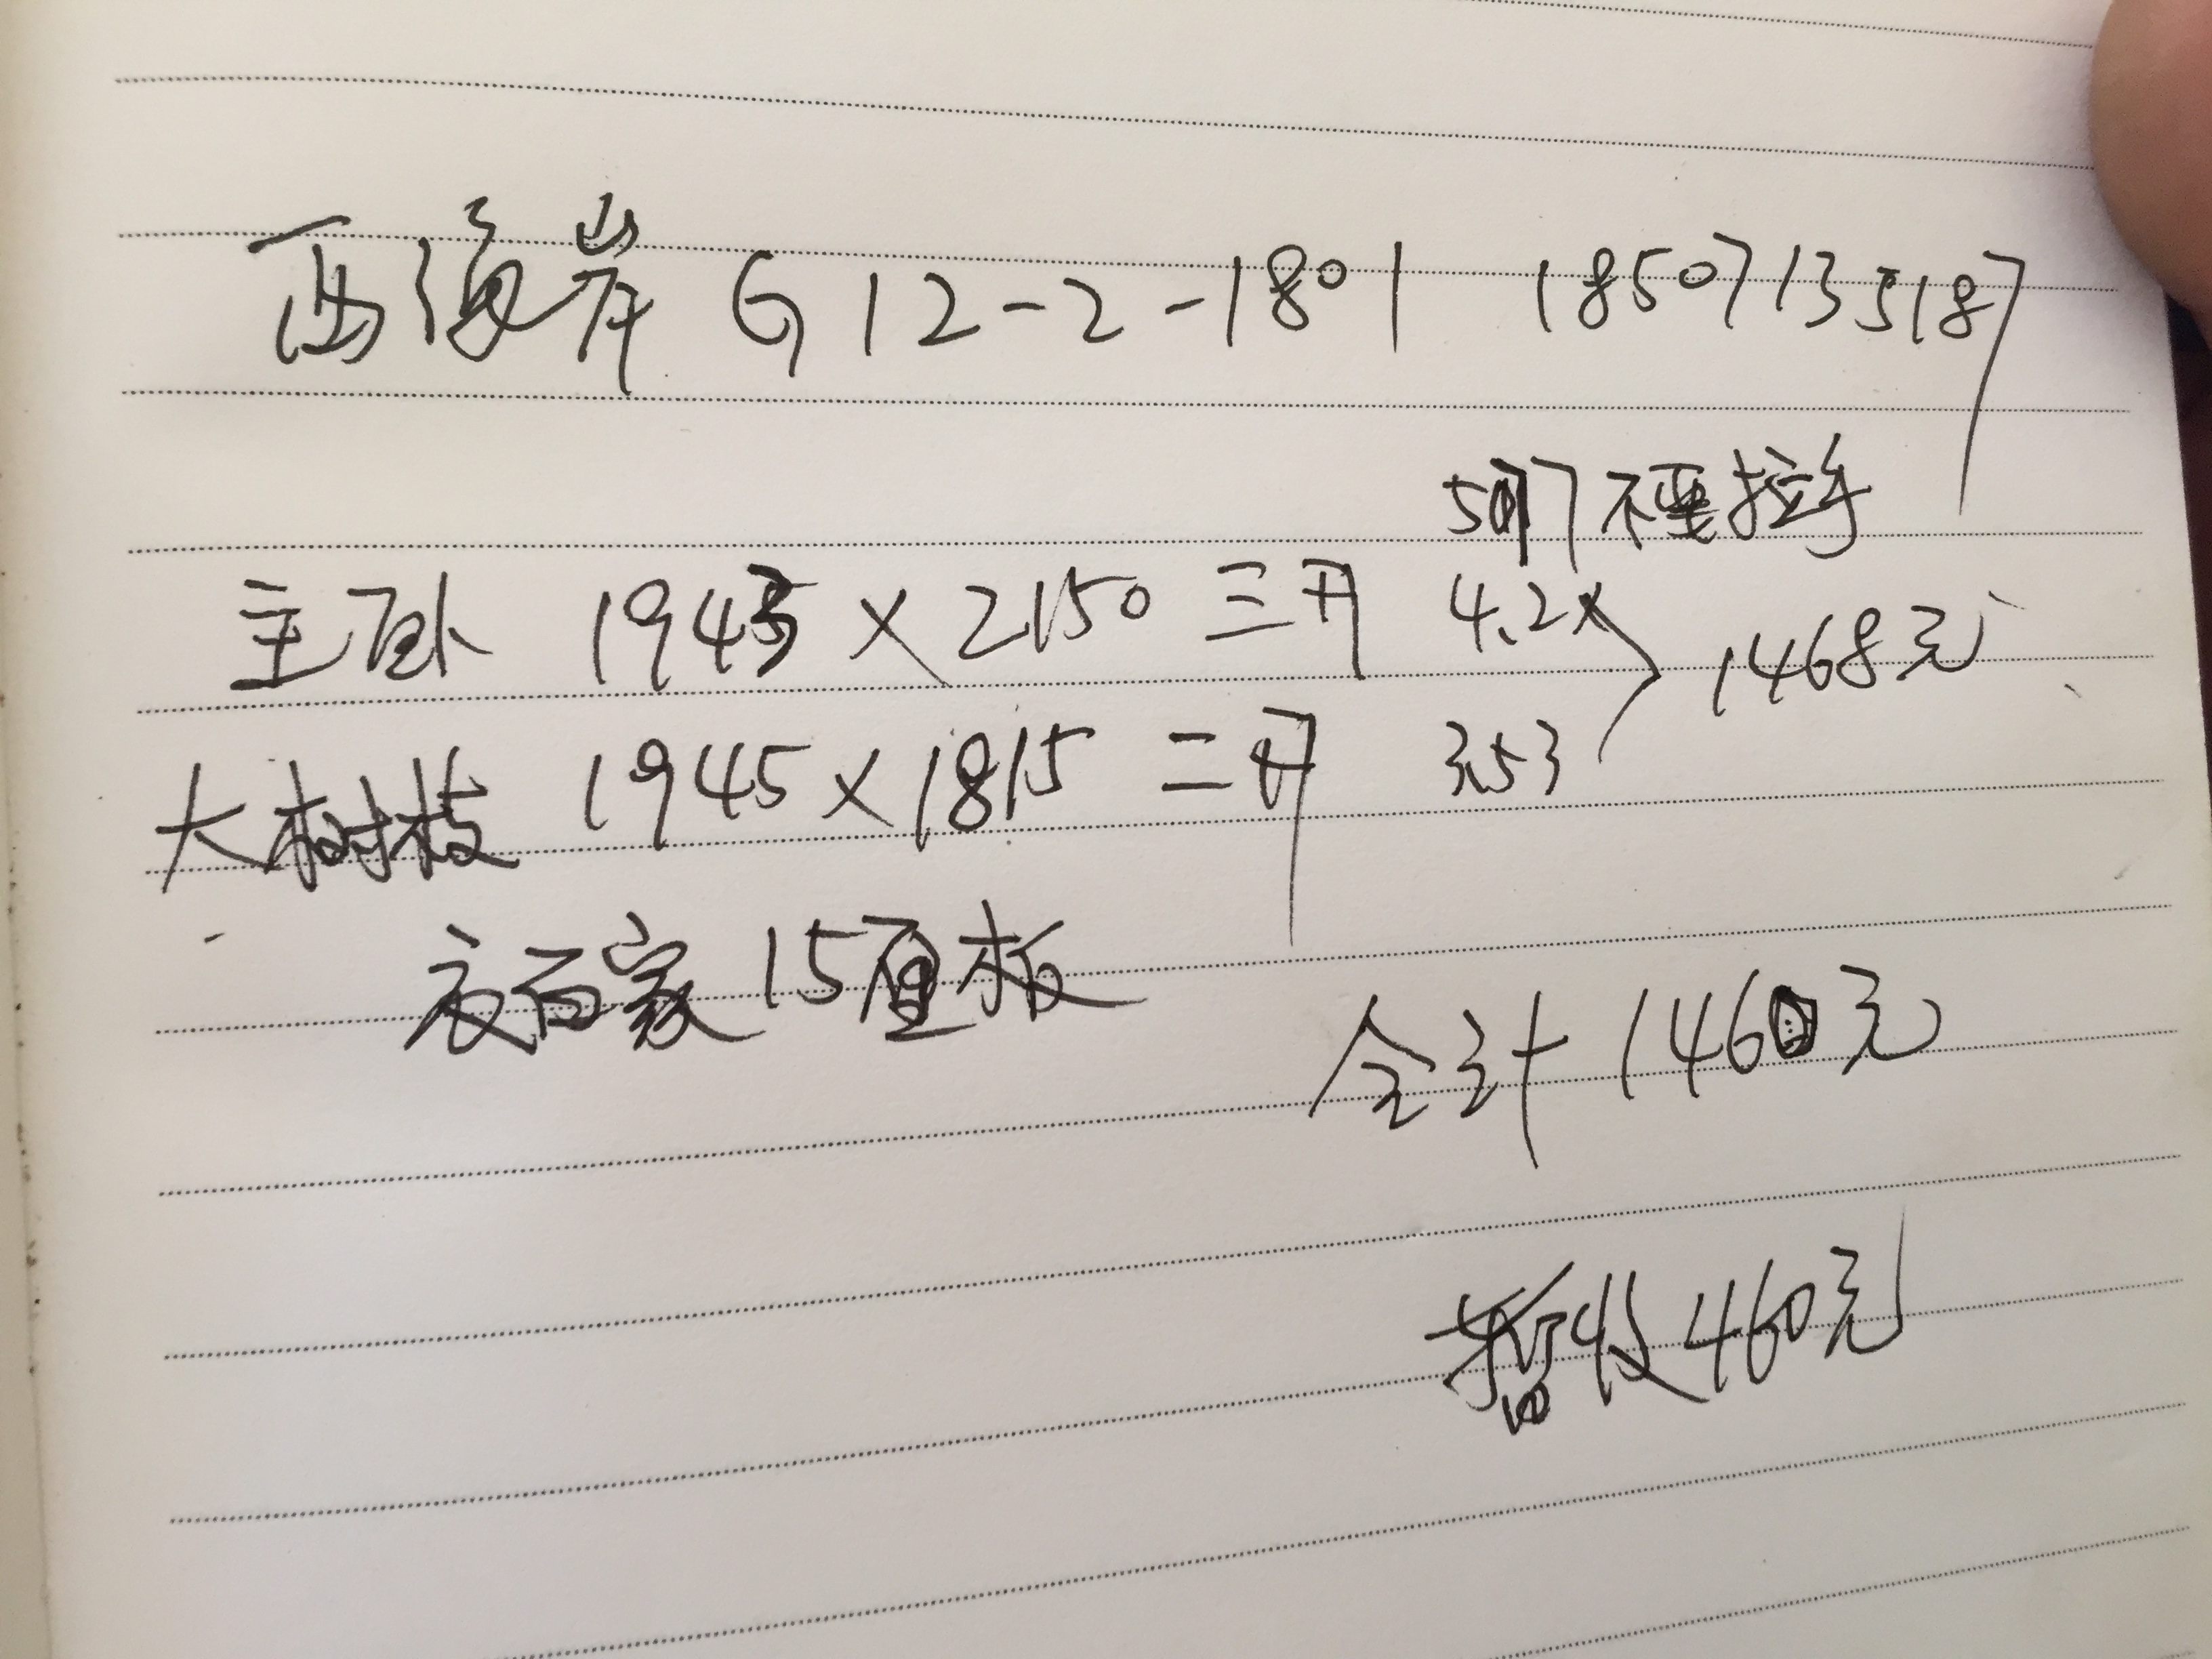 西海岸 G12-2-1801 18507135187
5门不要拉手
主卧 1945×2150 三开 4.2 1468元
大树枝 1945×1815 二开 3.53
衣百家 15厘板
合计 1460元
暂收460元